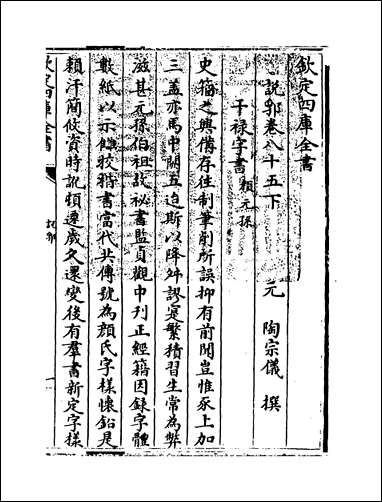 欽定四庫全書
說郛卷八十五下
元 陶宗儀 撰
干祿字書 顔元孫
史籀之興備存往制筆削所誤抑有前聞豈惟豕上加
三盖亦馬中闕五迨斯以降舛謬寔繁積習生常為弊
滋甚元孫伯祖故祕書監貞觀中刊正經籍因錄字體
數紙以示讎校楷書當代共傳號為顔氏字樣懷鉛是
賴汗簡攸資時訛頓遷歲久還變後有羣書新定字樣
欽定四庫全書
說郛